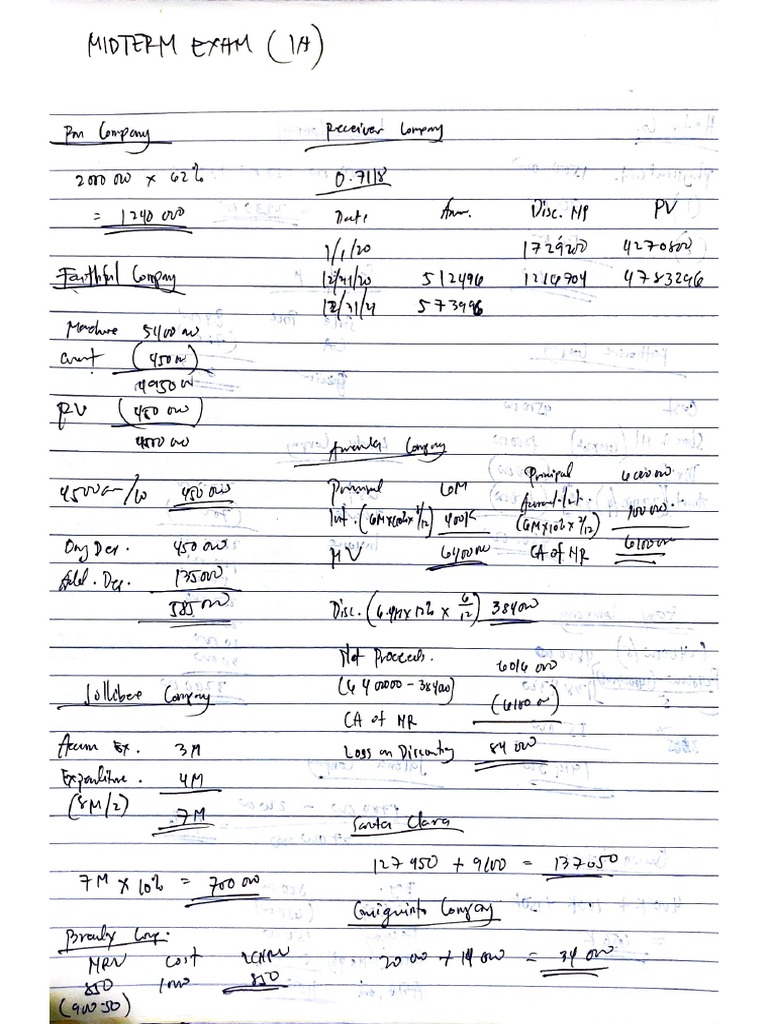 MIDTERM EXAM (1A)
Receiver Company
2000 000 x 62%
= 1240 000
0.7118
Date Am. Disc. NP PV
1/1/20 1729200 4270800
12/31/20 512496 1216704 4783296
12/31/21 573996
Faithful Company
Machine 5400 000
(450 000)
4950 000
RV (450 000)
4500 000
4500 000/10 450 000
Org Dep. 450 000
Add. Dep. 135000
585 000
Jollibee Company
Accum Ex. 3M
Expenditure. 4M
(8M/2)
7M
7M x 10% = 700 000
NRV Cost LCNRV
850 1000 850
(900-50)
Company
Principal 6M
Int. (6M x 10% x 8/12) 400K
MV 6400 000
Principal 6000 000
Accrued Int. 100 000.
(6M x 10% x 2/12)
CA of NR 6100 000
Disc. (6.4M x 12% x 6/12) 384000
Net Proceeds. 6016 000
(6400000 - 384000)
CA of NR (6100 000)
Loss on Discounting 84 000
Santa Clara
127 950 + 9100 = 137050
Company
20 000 + 14 000 = 34 000